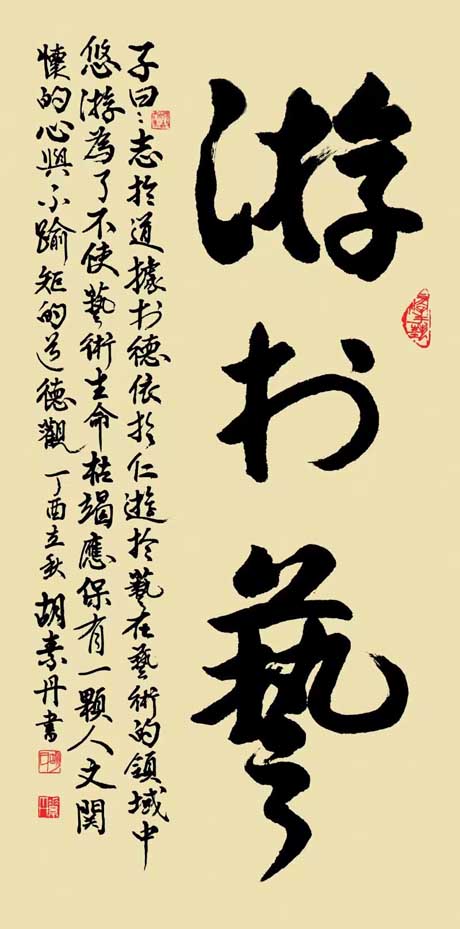 游於藝
子曰：志於道據於德依於仁遊於藝在藝術的領域中
悠游為了不使藝術生命枯竭應保有一顆人文関
懐的心與不踰矩的道德觀 丁酉立秋 胡素丹書